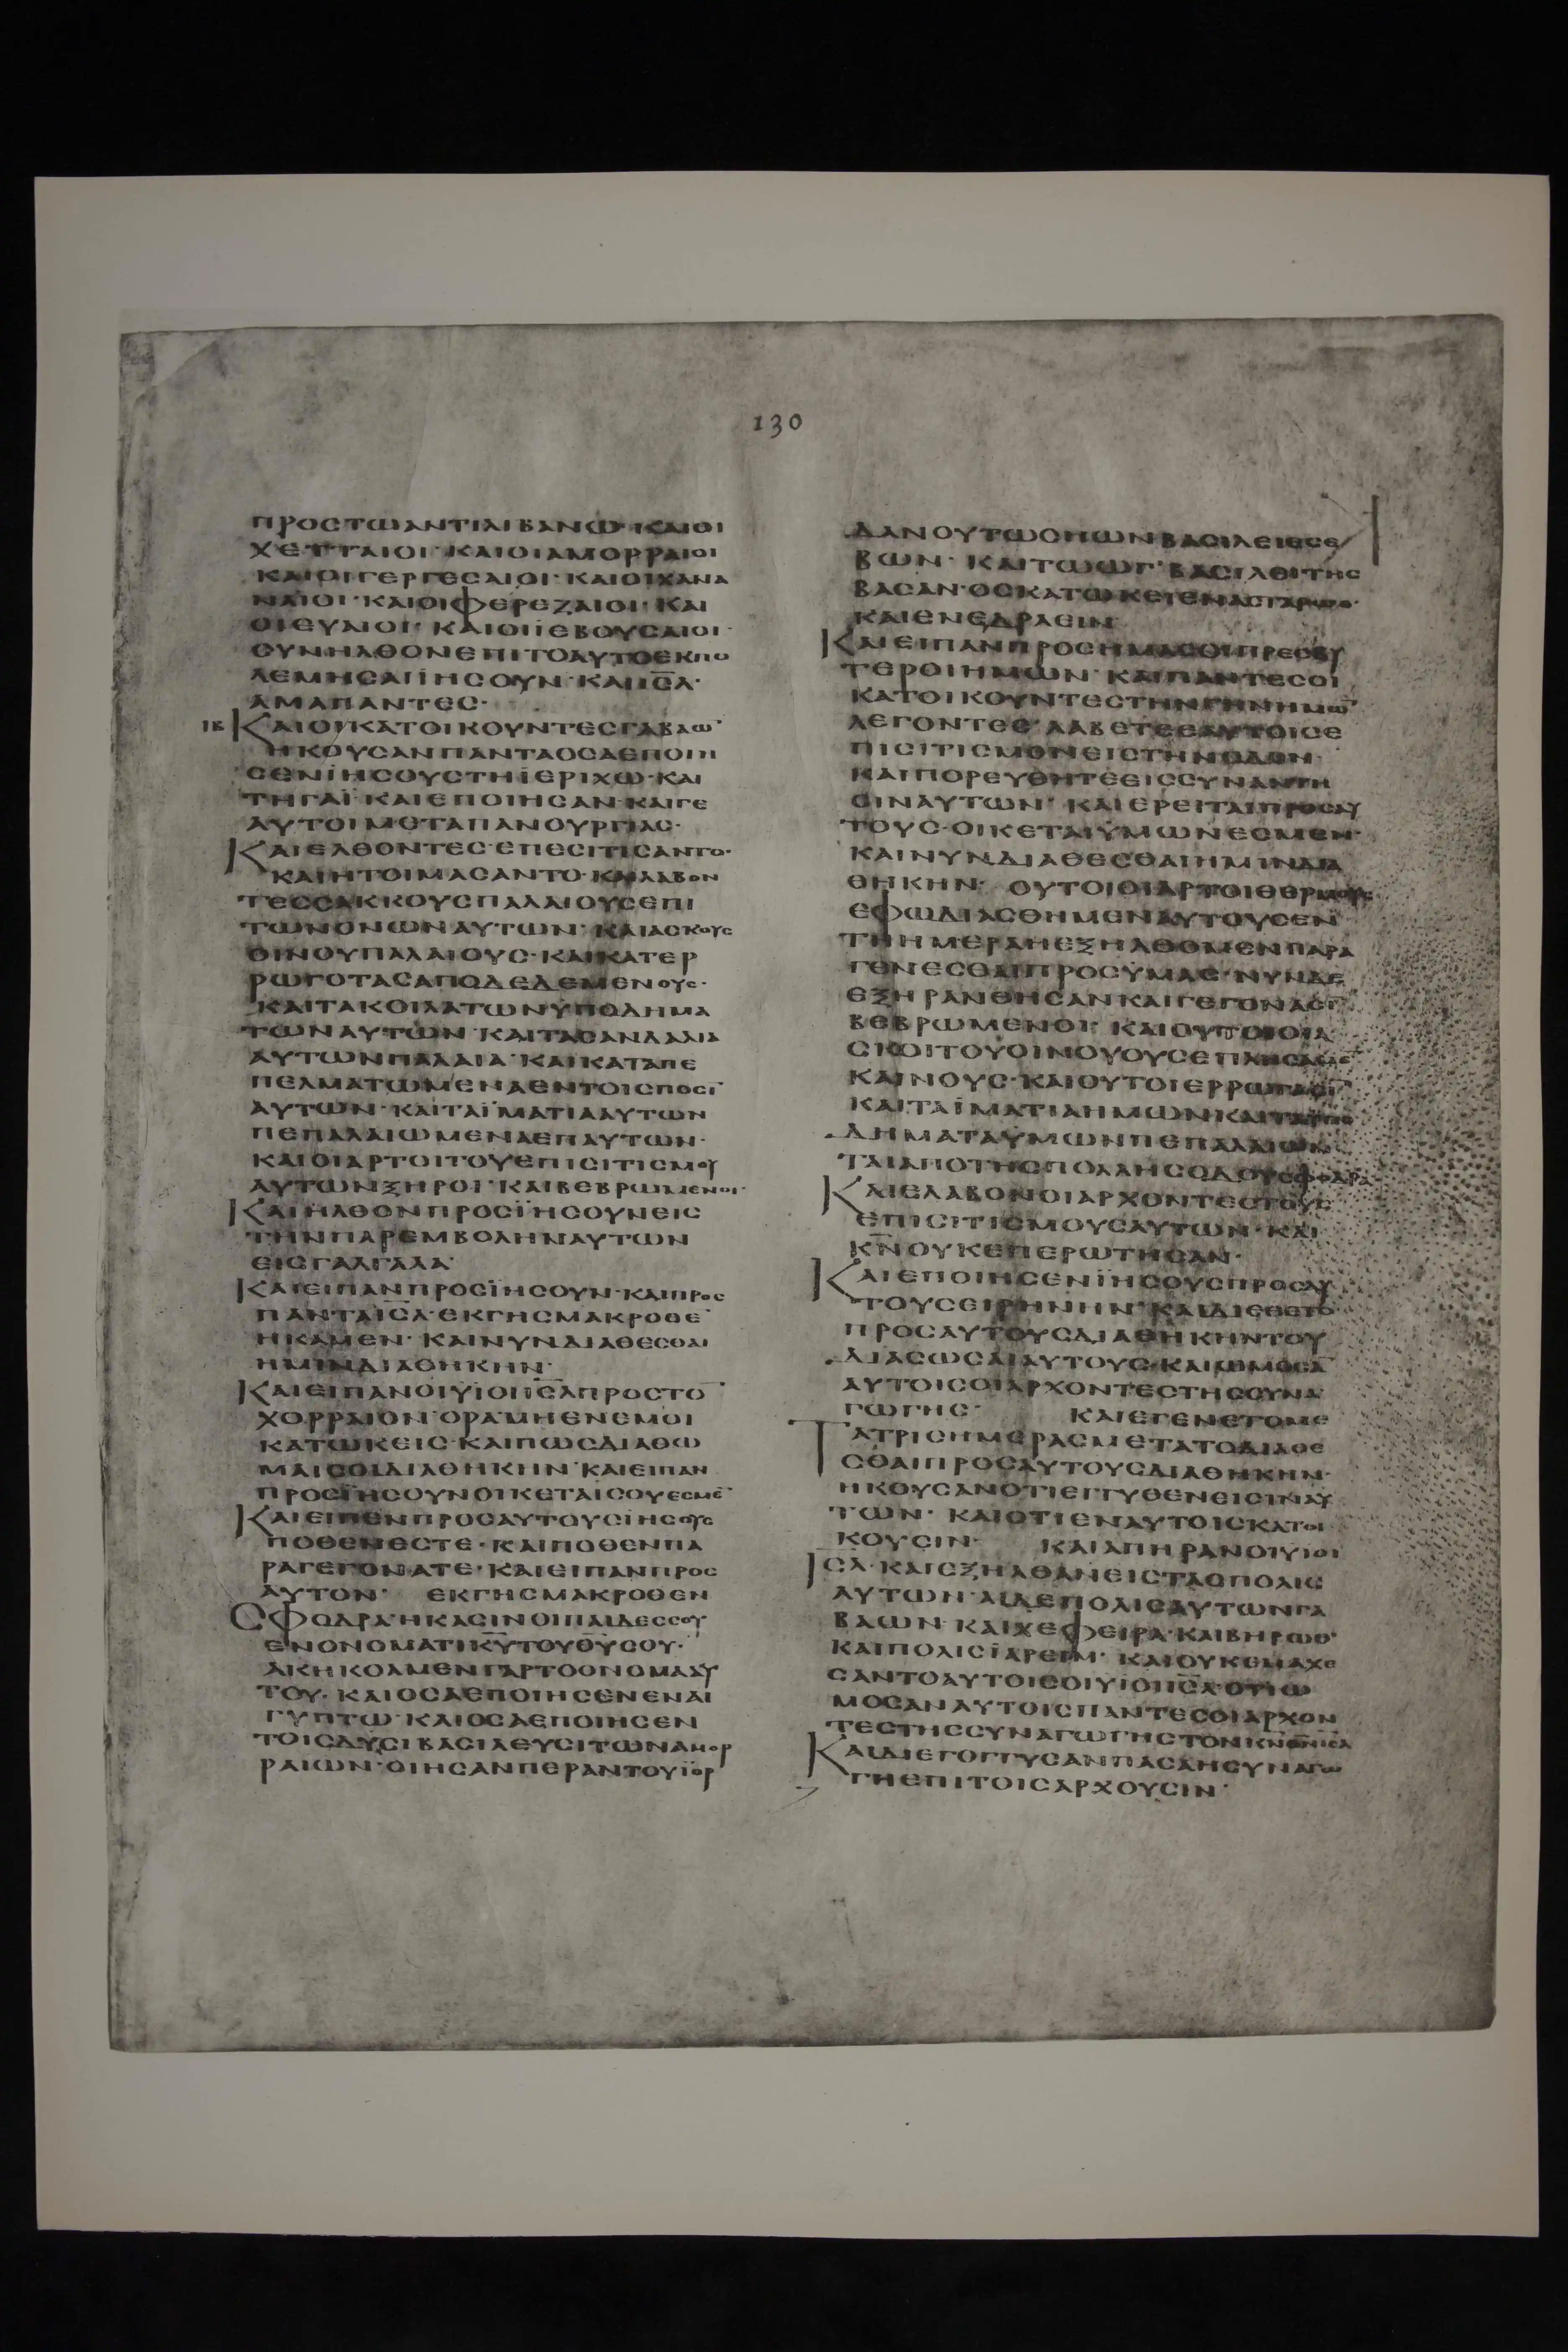 130
ΠΡΟϹΤΩΑΝΤΙΛΙΒΑΝΩ· ΚΑΙΟΙ
ΧΕΤΤΑΙΟΙ· ΚΑΙΟΙΑΜΟΡΡΑΙΟΙ
ΚΑΙΟΙΓΕΡΓΕϹΑΙΟΙ· ΚΑΙΟΙΧΑΝΑ
ΝΑΙΟΙ· ΚΑΙΟΙΦΕΡΕΖΑΙΟΙ· ΚΑΙ
ΟΙΕΥΑΙΟΙ· ΚΑΙΟΙΪΕΒΟΥϹΑΙΟΙ·
ϹΥΝΗΛΘΟΝΕΠΙΤΟΑΥΤΟΕΚΠΟ
ΛΕΜΗϹΑΙΪΗϹΟΥΝ· ΚΑΙΙ̅Ϲ̅Λ̅·
ΑΜΑΠΑΝΤΕϹ·
ΙΒ ΚΑΙΟΙΚΑΤΟΙΚΟΥΝΤΕϹΓΑΒΑΩ̅
ΗΚΟΥϹΑΝΠΑΝΤΑΟϹΑΕΠΟΙΗ
ϹΕΝΪΗϹΟΥϹΤΗΪΕΡΙΧΩ· ΚΑΙ
ΤΗΓΑΪ· ΚΑΙΕΠΟΙΗϹΑΝ· ΚΑΙΓΕ
ΑΥΤΟΙΜΕΤΑΠΑΝΟΥΡΓΙΑϹ·
ΚΑΙΕΛΘΟΝΤΕϹ· ΕΠΕϹΙΤΙϹΑΝΤΟ·
ΚΑΙΗΤΟΙΜΑϹΑΝΤΟ· ΚΑΙΛΑΒΟΝ
ΤΕϹϹΑΚΚΟΥϹΠΑΛΑΙΟΥϹΕΠΙ
ΤΩΝΟΝΩΝΑΥΤΩΝ· ΚΑΙΑϹΚΟΥϹ
ΟΙΝΟΥΠΑΛΑΙΟΥϹ· ΚΑΙΚΑΤΕΡ
ΡΩΓΟΤΑϹΑΠΟΔΕΔΕΜΕΝΟΥϹ·
ΚΑΙΤΑΚΟΙΛΑΤΩΝΫΠΟΔΗΜΑ
ΤΩΝΑΥΤΩΝ· ΚΑΙΤΑϹΑΝΔΑΛΙΑ
ΑΥΤΩΝΠΑΛΑΙΑ· ΚΑΙΚΑΤΑΠΕ
ΠΕΛΜΑΤΩΜΕΝΑΕΝΤΟΙϹΠΟϹΙ̅
ΑΥΤΩΝ· ΚΑΙΤΑΪΜΑΤΙΑΑΥΤΩΝ
ΠΕΠΑΛΑΙΩΜΕΝΑΕΠΑΥΤΩΝ·
ΚΑΙΟΙΑΡΤΟΙΤΟΥΕΠΙϹΙΤΙϹΜΟΥ
ΑΥΤΩΝΞΗΡΟΙ· ΚΑΙΒΕΒΡΩΜΕΝΟΙ·
ΚΑΙΗΛΘΟΝΠΡΟϹΪΗϹΟΥΝΕΙϹ
ΤΗΝΠΑΡΕΜΒΟΛΗΝΑΥΤΩΝ
ΕΙϹΓΑΛΓΑΛΑ·
ΚΑΙΕΙΠΑΝΠΡΟϹΪΗϹΟΥΝ· ΚΑΙΠΡΟϹ
ΠΑΝΤΑΙ̅Ϲ̅Λ̅· ΕΚΓΗϹΜΑΚΡΟΘΕ̅
ΗΚΑΜΕΝ· ΚΑΙΝΥΝΔΙΑΘΕϹΘΑΙ
ΗΜΙΝΔΙΑΘΗΚΗΝ·
ΚΑΙΕΙΠΑΝΟΙΫΙΟΙΙ̅Ϲ̅Λ̅ΠΡΟϹΤΟ̅
ΧΟΡΡΑΙΟΝ· ΟΡΑ· ΜΗΕΝΕΜΟΙ
ΚΑΤΩΚΕΙϹ· ΚΑΙΠΩϹΔΙΑΘΩ
ΜΑΙϹΟΙΔΙΑΘΗΚΗΝ· ΚΑΙΕΙΠΑΝ
ΠΡΟϹΪΗϹΟΥΝΟΙΚΕΤΑΙϹΟΥΕϹΜΕ̅
ΚΑΙΕΙΠΕΝΠΡΟϹΑΥΤΟΥϹΪΗϹΟΥϹ
ΠΟΘΕΝΕϹΤΕ· ΚΑΙΠΟΘΕΝΠΑ
ΡΑΓΕΓΟΝΑΤΕ· ΚΑΙΕΙΠΑΝΠΡΟϹ
ΑΥΤΟΝ· ΕΚΓΗϹΜΑΚΡΟΘΕΝ
ϹΦΟΔΡΑ· ΗΚΑϹΙΝΟΙΠΑΙΔΕϹϹΟΥ
ΕΝΟΝΟΜΑΤΙΚ̅Υ̅ΤΟΥΘ̅Υ̅ϹΟΥ·
ΑΚΗΚΟΑΜΕΝΓΑΡΤΟΟΝΟΜΑΑΥ
ΤΟΥ· ΚΑΙΟϹΑΕΠΟΙΗϹΕΝΕΝΑΙ
ΓΥΠΤΩ· ΚΑΙΟϹΑΕΠΟΙΗϹΕΝ
ΤΟΙϹΔΥϹΙΒΑϹΙΛΕΥϹΙΤΩΝΑΜΟΡ
ΡΑΙΩΝ· ΟΙΗϹΑΝΠΕΡΑΝΤΟΥΪΟΡ
ΔΑΝΟΥΤΩϹΗΩΝΒΑϹΙΛΕΙΕϹΕ
ΒΩΝ· ΚΑΙΤΩΩΓ· ΒΑϹΙΛΕΙΤΗϹ
ΒΑϹΑΝ· ΟϹΚΑΤΩΚΕΙΕΝΑϹΤΑΡΩΘ·
ΚΑΙΕΝΕΔΡΑΕΙΝ·
ΚΑΙΕΙΠΑΝΠΡΟϹΗΜΑϹΟΙΠΡΕϹΒΥ
ΤΕΡΟΙΗΜΩΝ· ΚΑΙΠΑΝΤΕϹΟΙ
ΚΑΤΟΙΚΟΥΝΤΕϹΤΗΝΓΗΝΗΜΩ̅
ΛΕΓΟΝΤΕϹ· ΛΑΒΕΤΕΕΑΥΤΟΙϹΕ
ΠΙϹΙΤΙϹΜΟΝΕΙϹΤΗΝΟΔΟΝ·
ΚΑΙΠΟΡΕΥΘΗΤΕΕΙϹϹΥΝΑΝΤΗ
ϹΙΝΑΥΤΩΝ· ΚΑΙΕΡΕΙΤΑΙΠΡΟϹΑΥ
ΤΟΥϹ· ΟΙΚΕΤΑΙΫΜΩΝΕϹΜΕΝ·
ΚΑΙΝΥΝΔΙΑΘΕϹΘΑΙΗΜΙΝΔΙΑ
ΘΗΚΗΝ· ΟΥΤΟΙΟΙΑΡΤΟΙΘΕΡΜΟΥϹ
ΕΦΩΔΙΑϹΘΗΜΕΝΑΥΤΟΥϹΕΝ
ΤΗΗΜΕΡΑΗΕΞΗΛΘΟΜΕΝΠΑΡΑ
ΓΕΝΕϹΘΑΙΠΡΟϹΫΜΑϹ· ΝΥΝΔΕ
ΕΞΗΡΑΝΘΗϹΑΝΚΑΙΓΕΓΟΝΑϹΙ̅
ΒΕΒΡΩΜΕΝΟΙ· ΚΑΙΟΥΤΟΙΟΙΑ
ϹΚΟΙΤΟΥΟΙΝΟΥΟΥϹΕΠΛΗϹΑΜΕ̅
ΚΑΙΝΟΥϹ· ΚΑΙΟΥΤΟΙΕΡΡΩΓΑϹΙ̅
ΚΑΙΤΑΪΜΑΤΙΑΗΜΩΝΚΑΙΤΑΫΠΟ
ΔΗΜΑΤΑΫΜΩΝΠΕΠΑΛΑΙΩΝ
ΤΑΙΑΠΟΤΗϹΠΟΛΛΗϹΟΔΟΥϹΦΟΔΡΑ
ΚΑΙΕΛΑΒΟΝΟΙΑΡΧΟΝΤΕϹΤΟΥϹ
ΕΠΙϹΙΤΙϹΜΟΥϹΑΥΤΩΝ· ΚΑΙ
Κ̅Ν̅ΟΥΚΕΠΕΡΩΤΗϹΑΝ·
ΚΑΙΕΠΟΙΗϹΕΝΪΗϹΟΥϹΠΡΟϹΑΥ
ΤΟΥϹΕΙΡΗΝΗΝ· ΚΑΙΔΙΕΘΕΤΟ
ΠΡΟϹΑΥΤΟΥϹΔΙΑΘΗΚΗΝΤΟΥ
ΔΙΑϹΩϹΑΙΑΥΤΟΥϹ· ΚΑΙΩΜΟϹΑ̅
ΑΥΤΟΙϹΟΙΑΡΧΟΝΤΕϹΤΗϹϹΥΝΑ
ΓΩΓΗϹ· ΚΑΙΕΓΕΝΕΤΟΜΕ
ΤΑΤΡΙϹΗΜΕΡΑϹΜΕΤΑΤΟΔΙΑΘΕ
ϹΘΑΙΠΡΟϹΑΥΤΟΥϹΔΙΑΘΗΚΗΝ·
ΗΚΟΥϹΑΝΟΤΙΕΓΓΥΘΕΝΕΙϹΙΝΑΥ
ΤΩΝ· ΚΑΙΟΤΙΕΝΑΥΤΟΙϹΚΑΤΟΙ
ΚΟΥϹΙΝ· ΚΑΙΑΠΗΡΑΝΟΙΥΙΟΙ
Ι̅Ϲ̅Λ̅· ΚΑΙΕΞΗΛΘΑΝΕΙϹΤΑϹΠΟΛΙϹ
ΑΥΤΩΝ· ΑΙΔΕΠΟΛΙϹΑΥΤΩΝΓΑ
ΒΑΩΝ· ΚΑΙΧΕΦΕΙΡΑ· ΚΑΙΒΗΡΩΘ·
ΚΑΙΠΟΛΙϹΪΑΡΕΙΜ· ΚΑΙΟΥΚΕΜΑΧΕ
ϹΑΝΤΟΑΥΤΟΙϹΟΙΥΙΟΙΙ̅Ϲ̅Λ̅· ΟΤΙΩ
ΜΟϹΑΝΑΥΤΟΙϹΠΑΝΤΕϹΟΙΑΡΧΟΝ
ΤΕϹΤΗϹϹΥΝΑΓΩΓΗϹΤΟΝΚ̅Ν̅Θ̅Ν̅Ι̅Ϲ̅Λ̅
ΚΑΙΔΙΕΓΟΓΓΥϹΑΝΠΑϹΑΗϹΥΝΑΓΩ
ΓΗΕΠΙΤΟΙϹΑΡΧΟΥϹΙΝ·